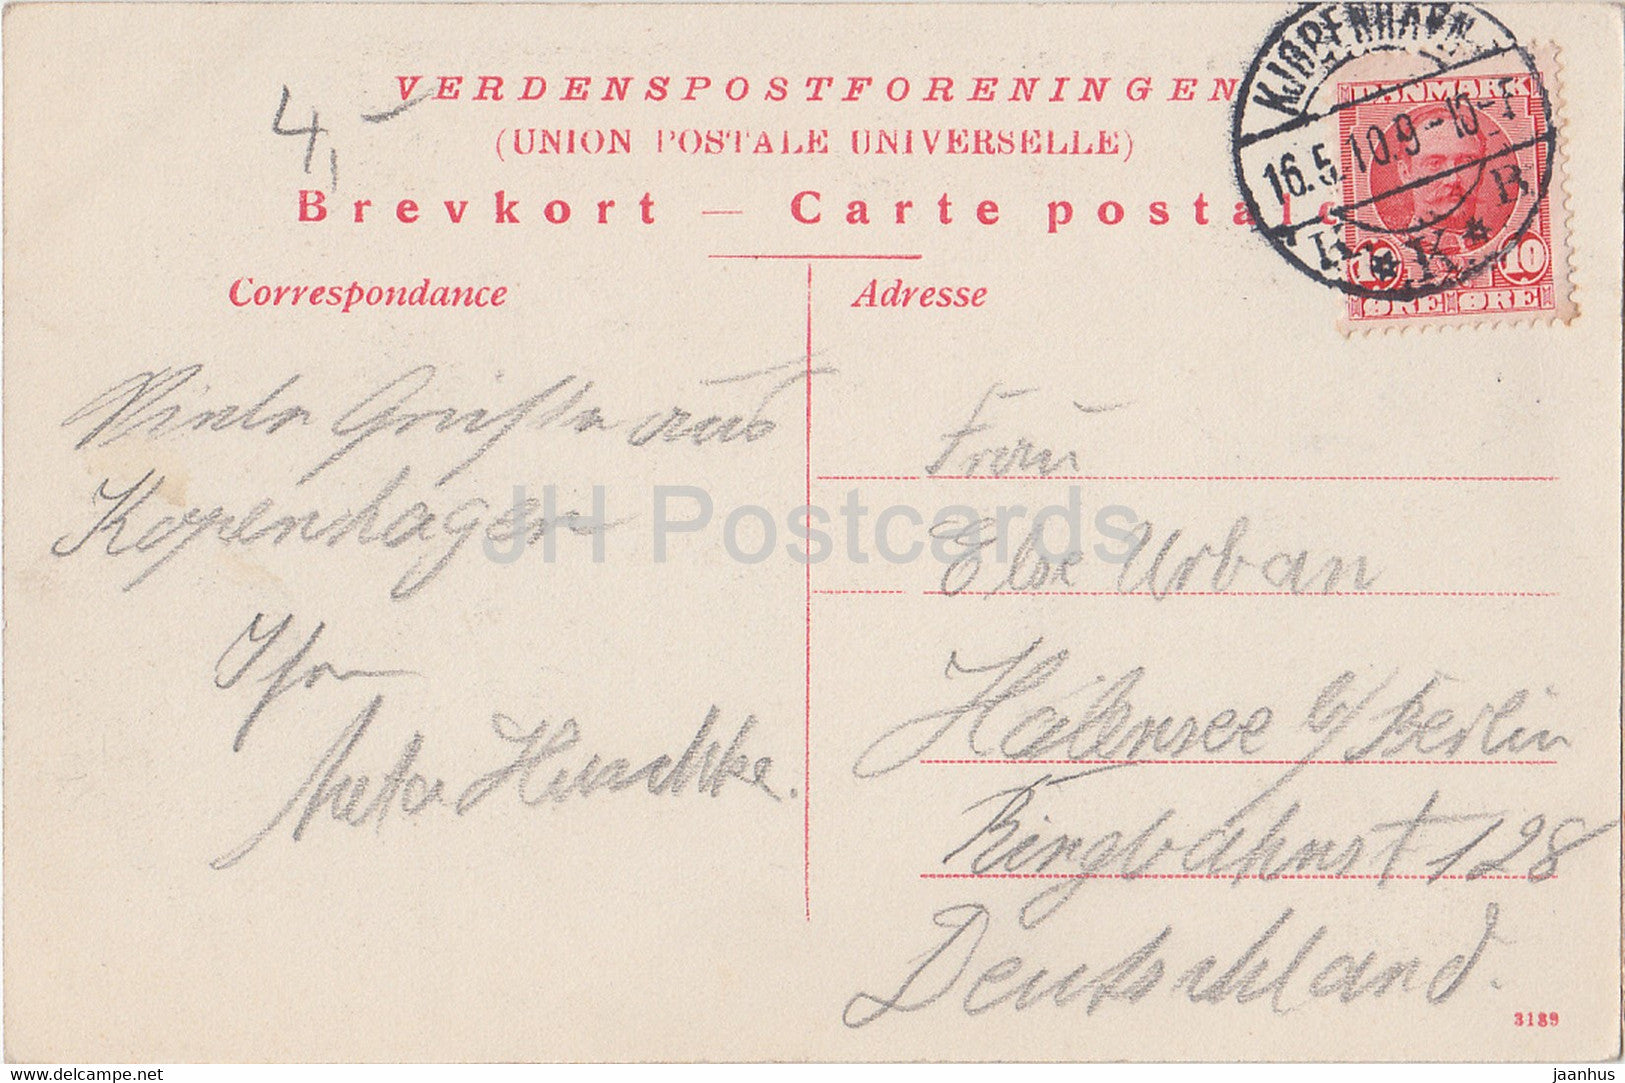 VERDENSPOSTFORENINGEN
(UNION POSTALE UNIVERSELLE)
Brevkort — Carte postale
4,-
KJØBENHAVN
16.5.10.9-10-F
K. K B
DANMARK
10 10
ØRE ØRE
Correspondance
Adresse
Viele Grüße aus
Kopenhagen
Ihr
Huschke.
Frau
Else Urban
Halensee b/Berlin
Ringbahnst 128
Deutschland.
3189
JH Postcards
www.delcampe.net
jaanhus